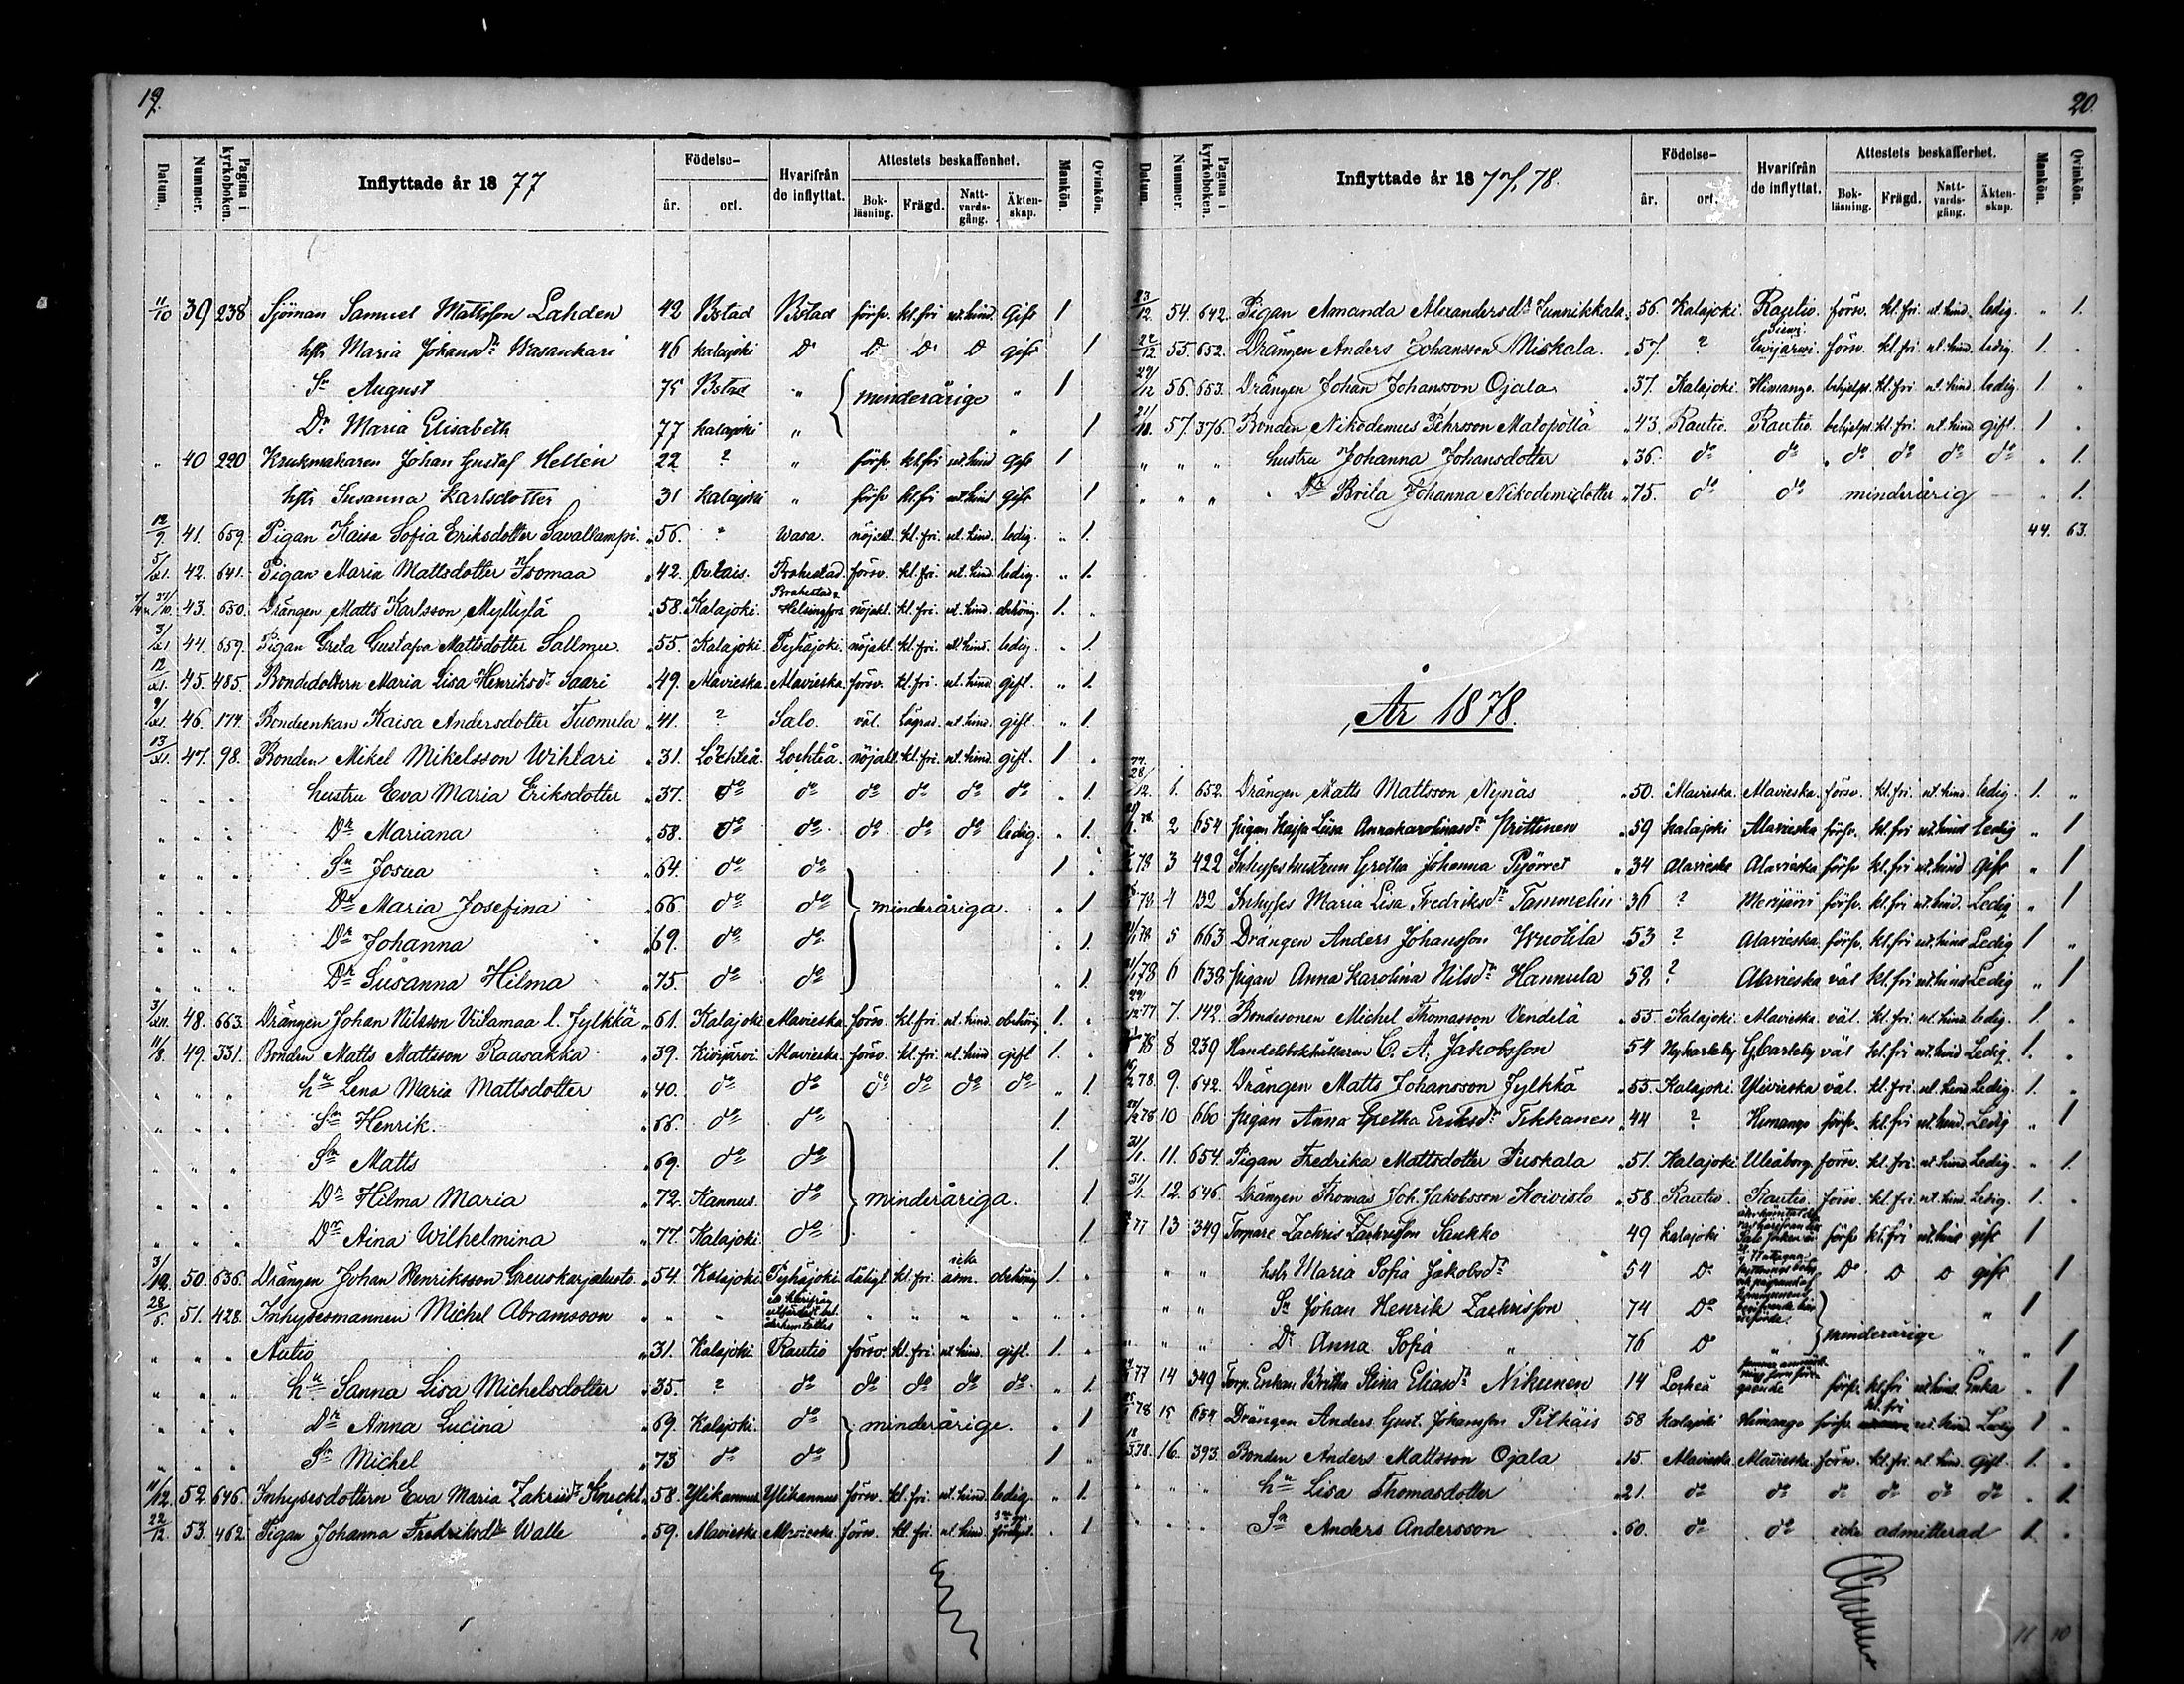 19.
Datum. Nummer. Pagina i kyrkoboken. Inflyttade år 1877 Födelse- år. ort. Hvarifrån de inflyttat. Attestets beskaffenhet. Bok-läsning. Frägd. Natt-vards-gång. Äkten-skap. Mankön. Qvinkön.
11/10 39 238 Sjöman Samuel Mattsson Lahden 42 Bstad Bstad försv. kl. fri nt. hind. Gift 1
hstr Maria Johansdr Wasankari 46 Kalajoki Do Do Do Do gift 1
Sn August 75 Bstad " minderårige " 1
Dr Maria Elisabeth 77 Kalajoki " " 1
" 40 220 Krukmakaren Johan Gustaf Hellén 22 ? " försv. kl. fri nt. hind Gift 1
hstr Susanna Karlsdotter 31 Kalajoki " försv kl. fri nt. hind gift 1
12/9. 41. 659. Pigan Kaisa Sofia Eriksdotter Savallampi. 56. " Wasa. nöjakt. kl. fri. nt. hind. ledig. " 1.
5/XI. 42. 641. Pigan Maria Mattsdotter Isomaa " 42. Brahestad. försv. kl. fri. nt. hind. ledig. " 1.
43. 650. Drängen Matts Karlsson Myllylä " 58. Kalajoki. Brahestad Helsingfors nöjakt. kl. fri. nt. hind. obehörig. 1. "
3/XI 44. 659. Pigan Greta Gustafva Mattsdotter Sallmu " 55. Kalajoki. Pyhäjoki. nöjakt. kl. fri. nt. hind. ledig. " 1.
12/XI. 45. 485. Bondedottern Maria Lisa Henriksdr Saari " 49. Alavieska. Alavieska. försv. kl. fri. nt. hind. gift. " 1.
9/XI. 46. 174. Bondeenkan Kaisa Andersdotter Tuomela " 41. ? Salo. väl. Lägrad. nt. hind. gift. " 1.
13/XI. 47. 98. Bonden Mikel Mikelsson Wihtari " 31. Lochteå. Lochteå. nöjakt. kl. fri. nt. hind. gift. 1 "
" " " hustru Eva Maria Eriksdotter " 37. do do do do do do " 1.
" " " Dr Mariana " 58. do do do do do ledig. " 1.
" " " Sn Josua " 64. do do 1 "
" " " Dr Maria Josefina " 66. do do minderåriga. " 1
" " " Dr Johanna " 69. do do " 1.
" " " Dr Susanna Hilma " 75. do do " 1.
3/XII. 48. 663. Drängen Johan Nilsson Viilamaa l. Jylkkä " 61. Kalajoki Alavieska försv. kl. fri. nt. hind. obehörig 1. "
11/8. 49. 331. Bonden Matts Mattsson Raasakka " 39. Kivijärvi Alavieska. försv. kl. fri. nt. hind gift 1. "
" " " hu Lena Maria Mattsdotter " 40. do do do do do do " 1.
" " " Sn Henrik. " 66. do do 1.
" " " Sn Matts " 69. do do 1.
" " " Dr Hilma Maria " 72. Kannus. do minderåriga. 1
" " " Dr Aina Wilhelmina " 77. Kalajoki. do 1
3/12. 50. 636. Drängen Johan Henriksson " 54. Kalajoki Pyhäjoki dåligt kl. fri. icke adm. obehörig 1. "
28/5. 51. 428. Inhysesmannen Michel Abramsson " " " " " "
" " " Autio " 31. Kalajoki. Rautio försv. kl. fri. nt. hind. gift. 1. "
" " " hu Sanna Lisa Michelsdotter " 35. ? do do do do do. " 1.
" " " Dr Anna Lucina " 69. Kalajoki. do minderårige. " 1
" " " Sn Michel " 73 do do 1 "
11/12. 52. 646. Inhysesdottern Eva Maria Zakrisdr Knecht " 58. Ylikannus. Ylikannus försv. kl. fri. nt. hind ledig. " 1.
22/12. 53. 462. Pigan Johanna Fredriksdr Walle " 59. Alavieska Alavieska försv. kl. fri. nt. hind. " 1
20.
Datum. Nummer. Pagina i kyrkoboken. Inflyttade år 1877, 78. Födelse- år. ort. Hvarifrån de inflyttat. Attestets beskaffenhet. Bok-läsning. Frägd. Natt-vards-gång. Äkten-skap. Mankön. Qvinkön.
23/12. 54. 642. Pigan Amanda Alexandersdr Junnikkala " 56. Kalajoki Rautio. försv. kl. fri. nt. hind. ledig. " 1.
22/12 55. 652. Drängen Anders Johansson Niskala. " 57. ? Sievi Evijärvi. försv. kl. fri. nt. hind. ledig. 1. "
29/12 56. 653. Drängen Johan Johansson Ojala " 37. Kalajoki. Himango. behjelpl. kl. fri nt. hind. ledig. 1. "
57. 376. Bonden Nikodemus Pehrsson Matopöllä " 43. Rautio. Rautio. behjelpl. kl. fri. nt. hind. gift. 1 "
" " " hustru Johanna Johansdotter " 36. do do do do do do " 1.
" " " Dr Brita Johanna Nikodemidotter " 75. do do minderårig " 1.
44. 63.
År 1878.
77. 28/12. 1. 652. Drängen Matts Mattsson Nynäs " 50. Alavieska. Alavieska. försv. kl. fri. nt. hind. ledig. 1. "
2 654 pigan Kajsa Lisa Annakarolinasdr Krittinen " 59 Kalajoki Alavieska försv. kl. fri nt. hind Ledig " 1
78 3 422 Inhyses hustrun Gretha Johanna Pyörret " 34 Alavieska Alavieska försv kl. fri nt. hind Gift " 1
78 4 132 Inhyses Maria Lisa Fredriksdr Tammelin 36 ? Merijärvi försv. kl. fri nt. hind. Ledig " 1
78 5 663 Drängen Anders Johansson Wuotila 53 ? Alavieska försv. kl. fri nt. hind Ledig 1 "
78 6 638 pigan Anna Karolina Nilsdr Hannula 52 ? Alavieska väl kl. fri nt. hind Ledig " 1
77 7. 142. Bondesonen Michel Thomasson Vendelä " 55. Kalajoki. Alavieska. väl. kl. fri. nt. hind ledig. 1. "
78 8 239 Handelsbokhållaren C. A. Jakobsson 54 Nykarleby Gkarleby väl kl. fri nt. hind Ledig. 1. "
78. 9. 642. Drängen Matts Johansson Jylkkä " 55. Kalajoki Ylivieska väl. kl. fri. nt. hind Ledig. 1. "
78 10 660 pigan Anna Gretha Eriksdr Tikkanen " 44 ? Himango försv. kl. fri nt. hind. Ledig " 1
31/1. 11. 654. Pigan Fredrika Mattsdotter Puskala " 51. Kalajoki Uleåborg. försv. kl. fri. nt. hind Ledig. " 1.
31/1. 12. 646. Drängen Thomas Joh. Jakobsson Koivisto " 58. Rautio. Rautio. försv. kl. fri. nt. hind. Ledig. 1. "
77 13 349 Torpare Zachris Zachrisson Saukko 49 Kalajoki försv kl. fri nt. hind gift 1
" " hstr Maria Sofia Jakobsdr 54 Do Do Do Do gift 1
" " Sn Johan Henrik Zachrisson 74 Do " 1
" " " Dr Anna Sofia " 76 Do " minderårige " " 1
77 14 349 Torp. Enkan Britha Stina Eliasdr Nikunen 14 Locheå försv. kl. fri nt. hind. Enka " 1
78 15 654 Drängen Anders Gust. Johansson Pitkäis 58 Kalajoki Himango försv. kl. fri nt. hind. Ledig 1 "
78. 16. 393. Bonden Anders Mattsson Ojala " 15. Alavieska Alavieska försv. kl. fri. nt. hind. Gift 1. "
" " " hu Lisa Thomasdotter " 21. do do do do do do " 1.
" " " Sn Anders Andersson " 60. do do icke admitterad 1. "
11 10